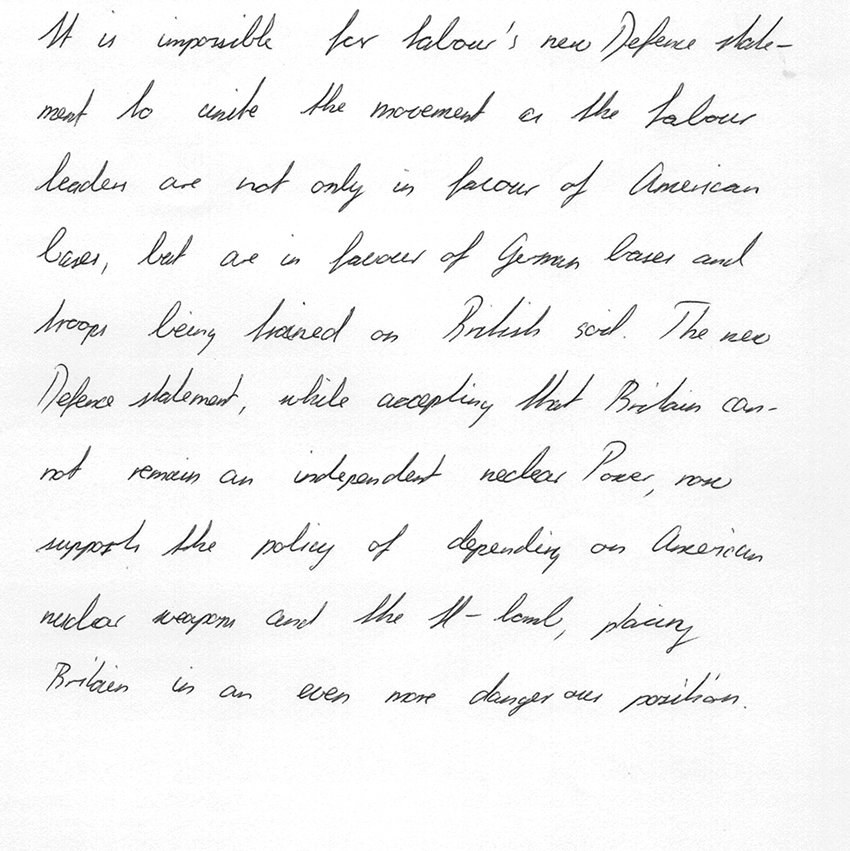 It is impossible for Labour's new Defence state-
ment to unite the movement as the Labour
leaders are not only in favour of American
bases, but are in favour of German bases and
troops being trained on British soil. The new
Defence statement, while accepting that Britain can-
not remain an independent nuclear Power, now
supports the policy of depending on American
nuclear weapons and the H-bomb, placing
Britain in an even more dangerous position.